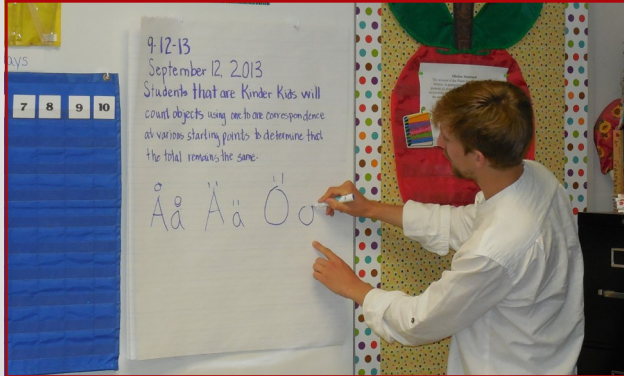 ays
7 8 9 10
9-12-13
September 12, 2013
Students that are Kinder Kids will
count objects using one to one correspondence
at various starting points to determine that
the total remains the same.
Å å Ä ä Ö o